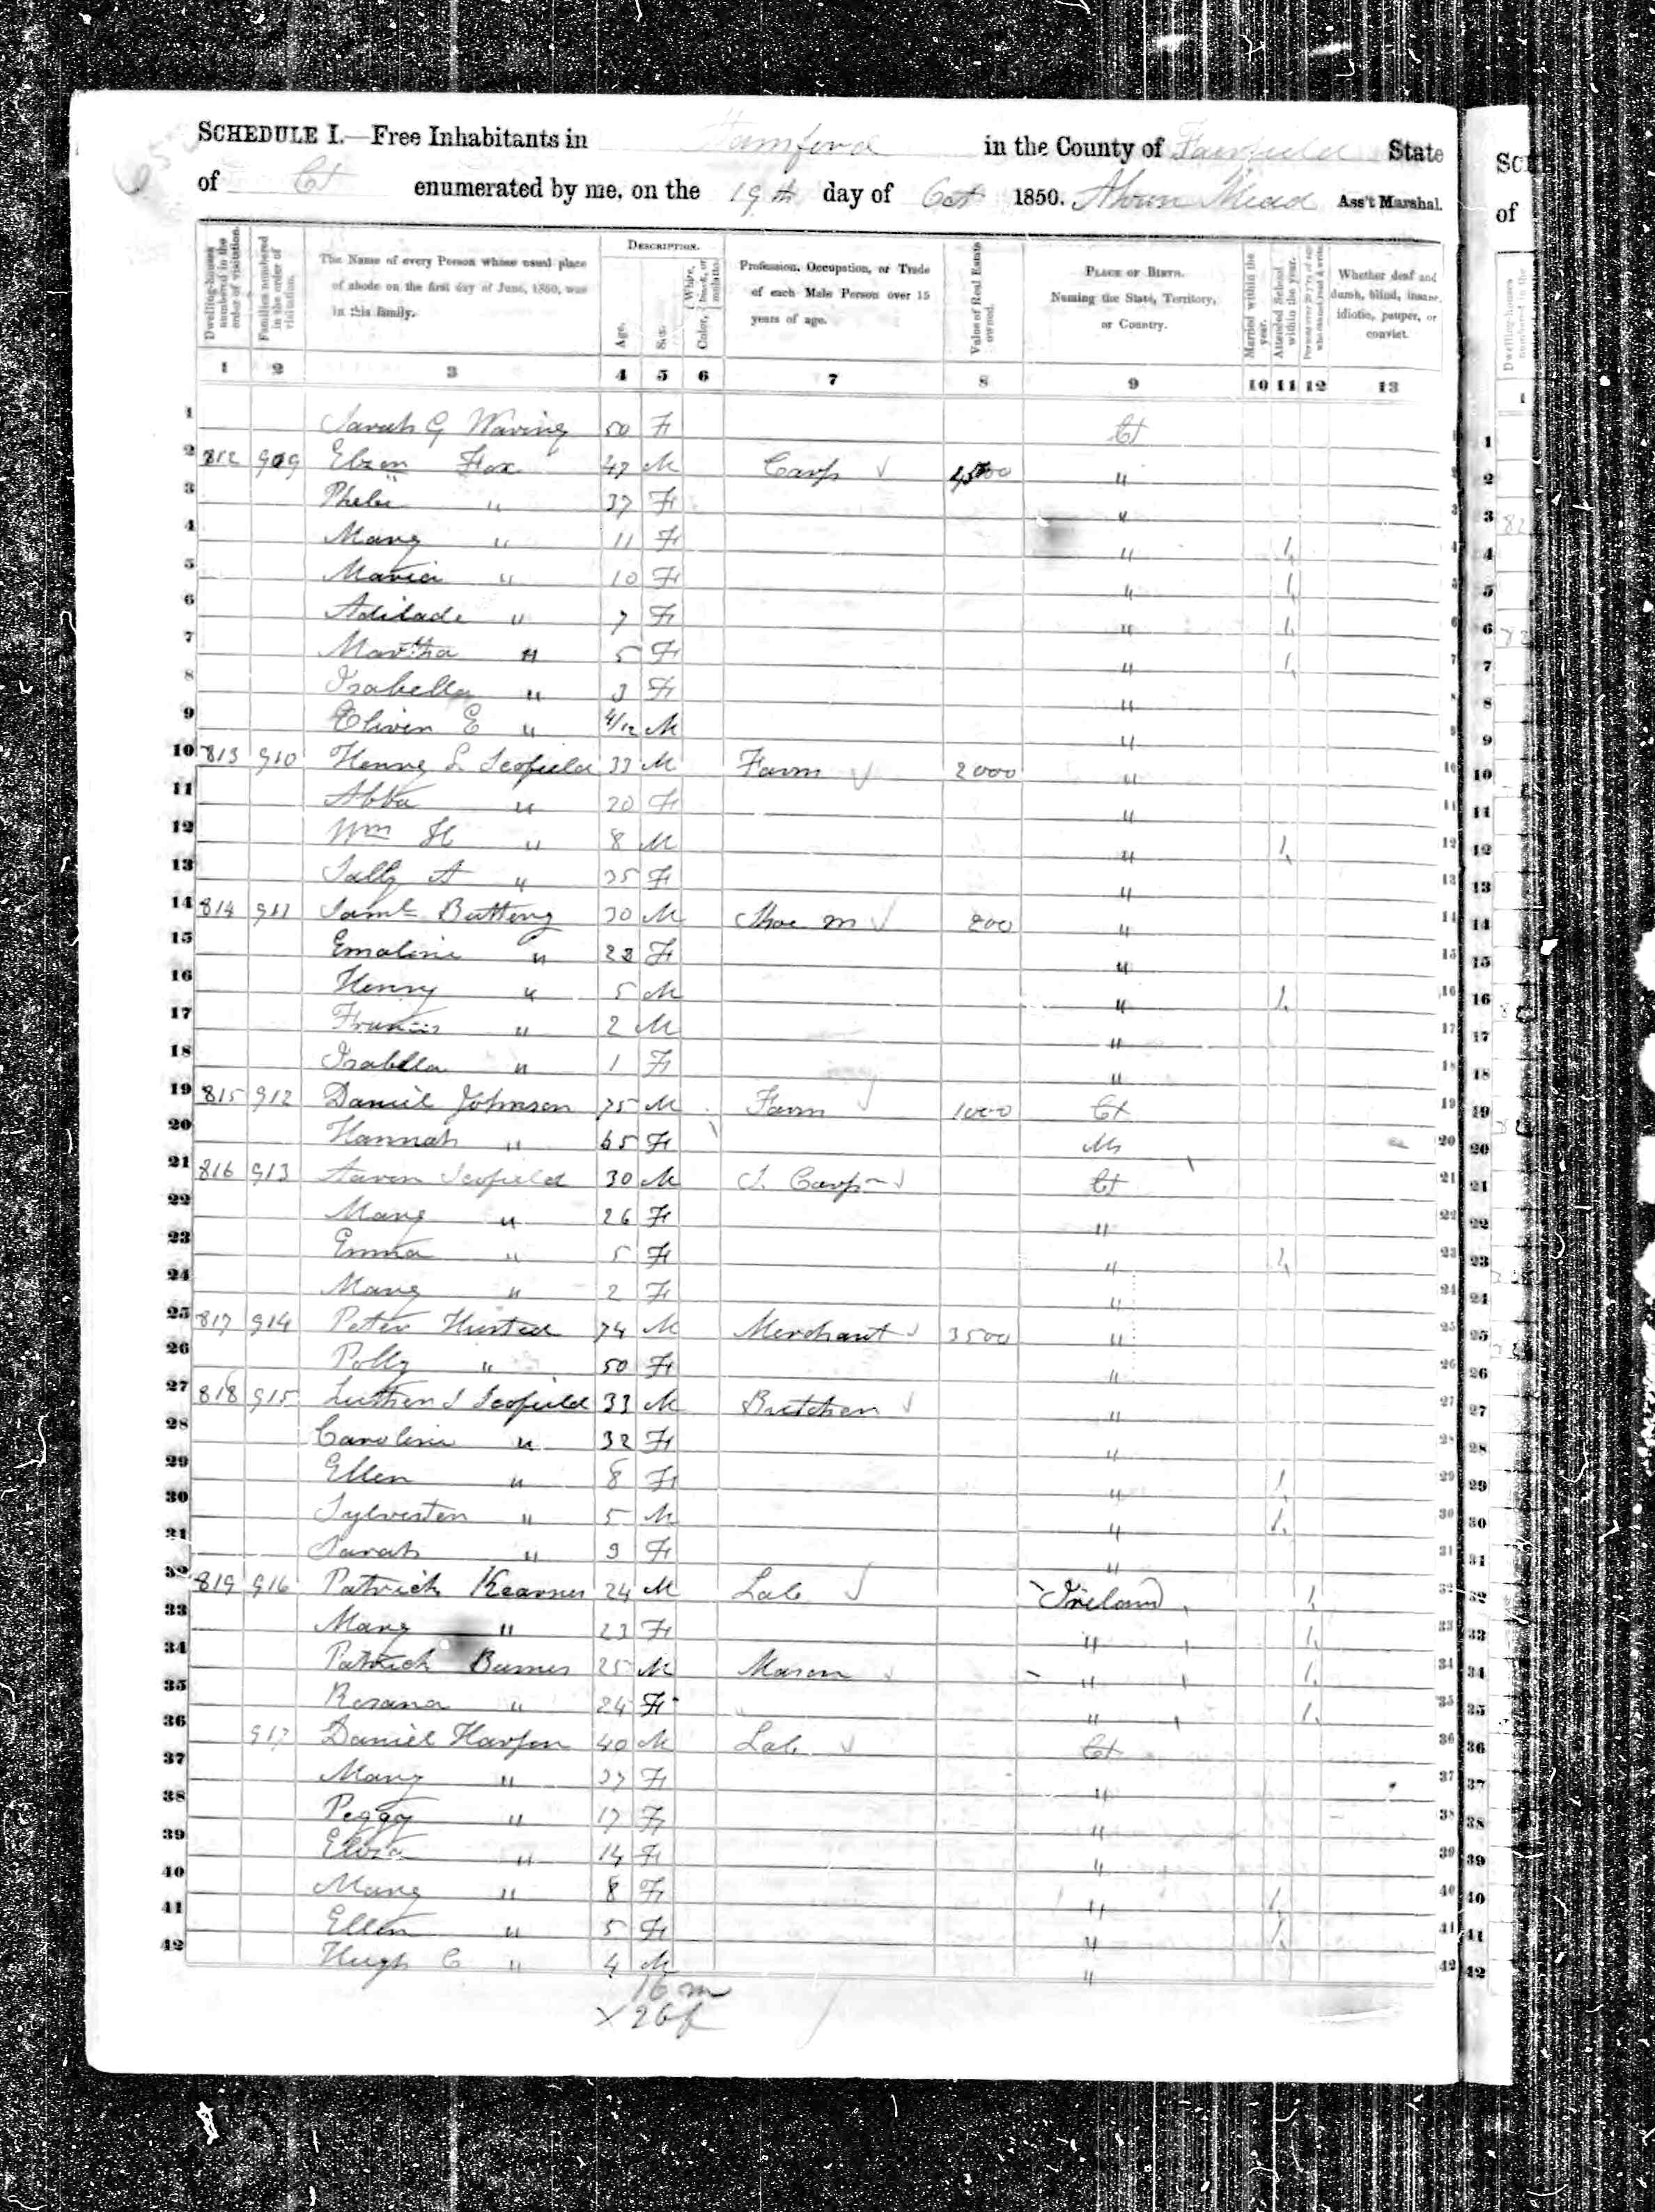 SCHEDULE I.—Free Inhabitants in Stamford in the County of Fairfield State
of Ct enumerated by me, on the 19th day of Oct 1850. Alvan Mead Ass't Marshal.
Dwelling-houses numbered in the order of visitation.
Families numbered in the order of visitation.
The Name of every Person whose usual place of abode on the first day of June, 1850, was in this family.
DESCRIPTION.
Age.
Sex.
Color, White, black, or mulatto.
Profession, Occupation, or Trade of each Male Person over 15 years of age.
Value of Real Estate owned.
PLACE OF BIRTH. Naming the State, Territory, or Country.
Married within the year.
Attended School within the year.
Persons over 20 y'rs of age who cannot read & write.
Whether deaf and dumb, blind, insane, idiotic, pauper, or convict.
1 2 3 4 5 6 7 8 9 10 11 12 13
1 Sarah G Waring 50 F Ct 1
2 812 909 Eben Fox 47 M Carp " 2
3 Phebe " 37 F " 3
4 Mary " 11 F " 1 4
5 Maria " 10 F " 1 5
6 Adilade " 7 F " 1 6
7 Martha " 5 F " 1 7
8 Isabella " 3 F " 8
9 E " 4/12 M " 9
10 813 910 Henry L Scofield 33 M Farm 2000 " 10
11 Abba " 20 F " 11
12 Wm H " 8 M " 1 12
13 Sally A " 35 F " 13
14 814 911 Saml Buttery 30 M Shoe m 200 " 14
15 Emaline " 28 F " 15
16 Henry " 5 M " 1 16
17 Francis " 2 M " 17
18 Isabella " 1 F " 18
19 815 912 Daniel Johnson 75 M Farm 1000 Ct 19
20 Hannah " 65 F Ms 20
21 816 913 Aaron Scofield 30 M S. Carp Ct 21
22 Mary " 26 F " 22
23 Emma " 5 F " 1 23
24 Mary " 2 F " 24
25 817 914 Peter Husted 74 M Merchant 3500 " 25
26 Polly " 50 F " 26
27 818 915 Luther S Scofield 33 M Butcher " 27
28 Caroline " 32 F " 28
29 Ellen " 8 F " 1 29
30 Sylvester " 5 M " 1 30
31 Sarah " 3 F " 31
32 819 916 Patrick Kearnes 24 M Lab Ireland 1 32
33 Mary " 23 F " 1 33
34 Patrick Burnes 25 M Mason " 1 34
35 Rosana " 24 F " 1 35
36 917 Daniel Harpen 40 M Lab Ct 36
37 Mary " 37 F " 37
38 Peggy " 17 F " 38
39 " 14 F " 39
40 Mary " 8 F " 1 40
41 Ellen " 5 F " 1 41
42 Hugh C " 4 M " 42
16 m
X 26 f